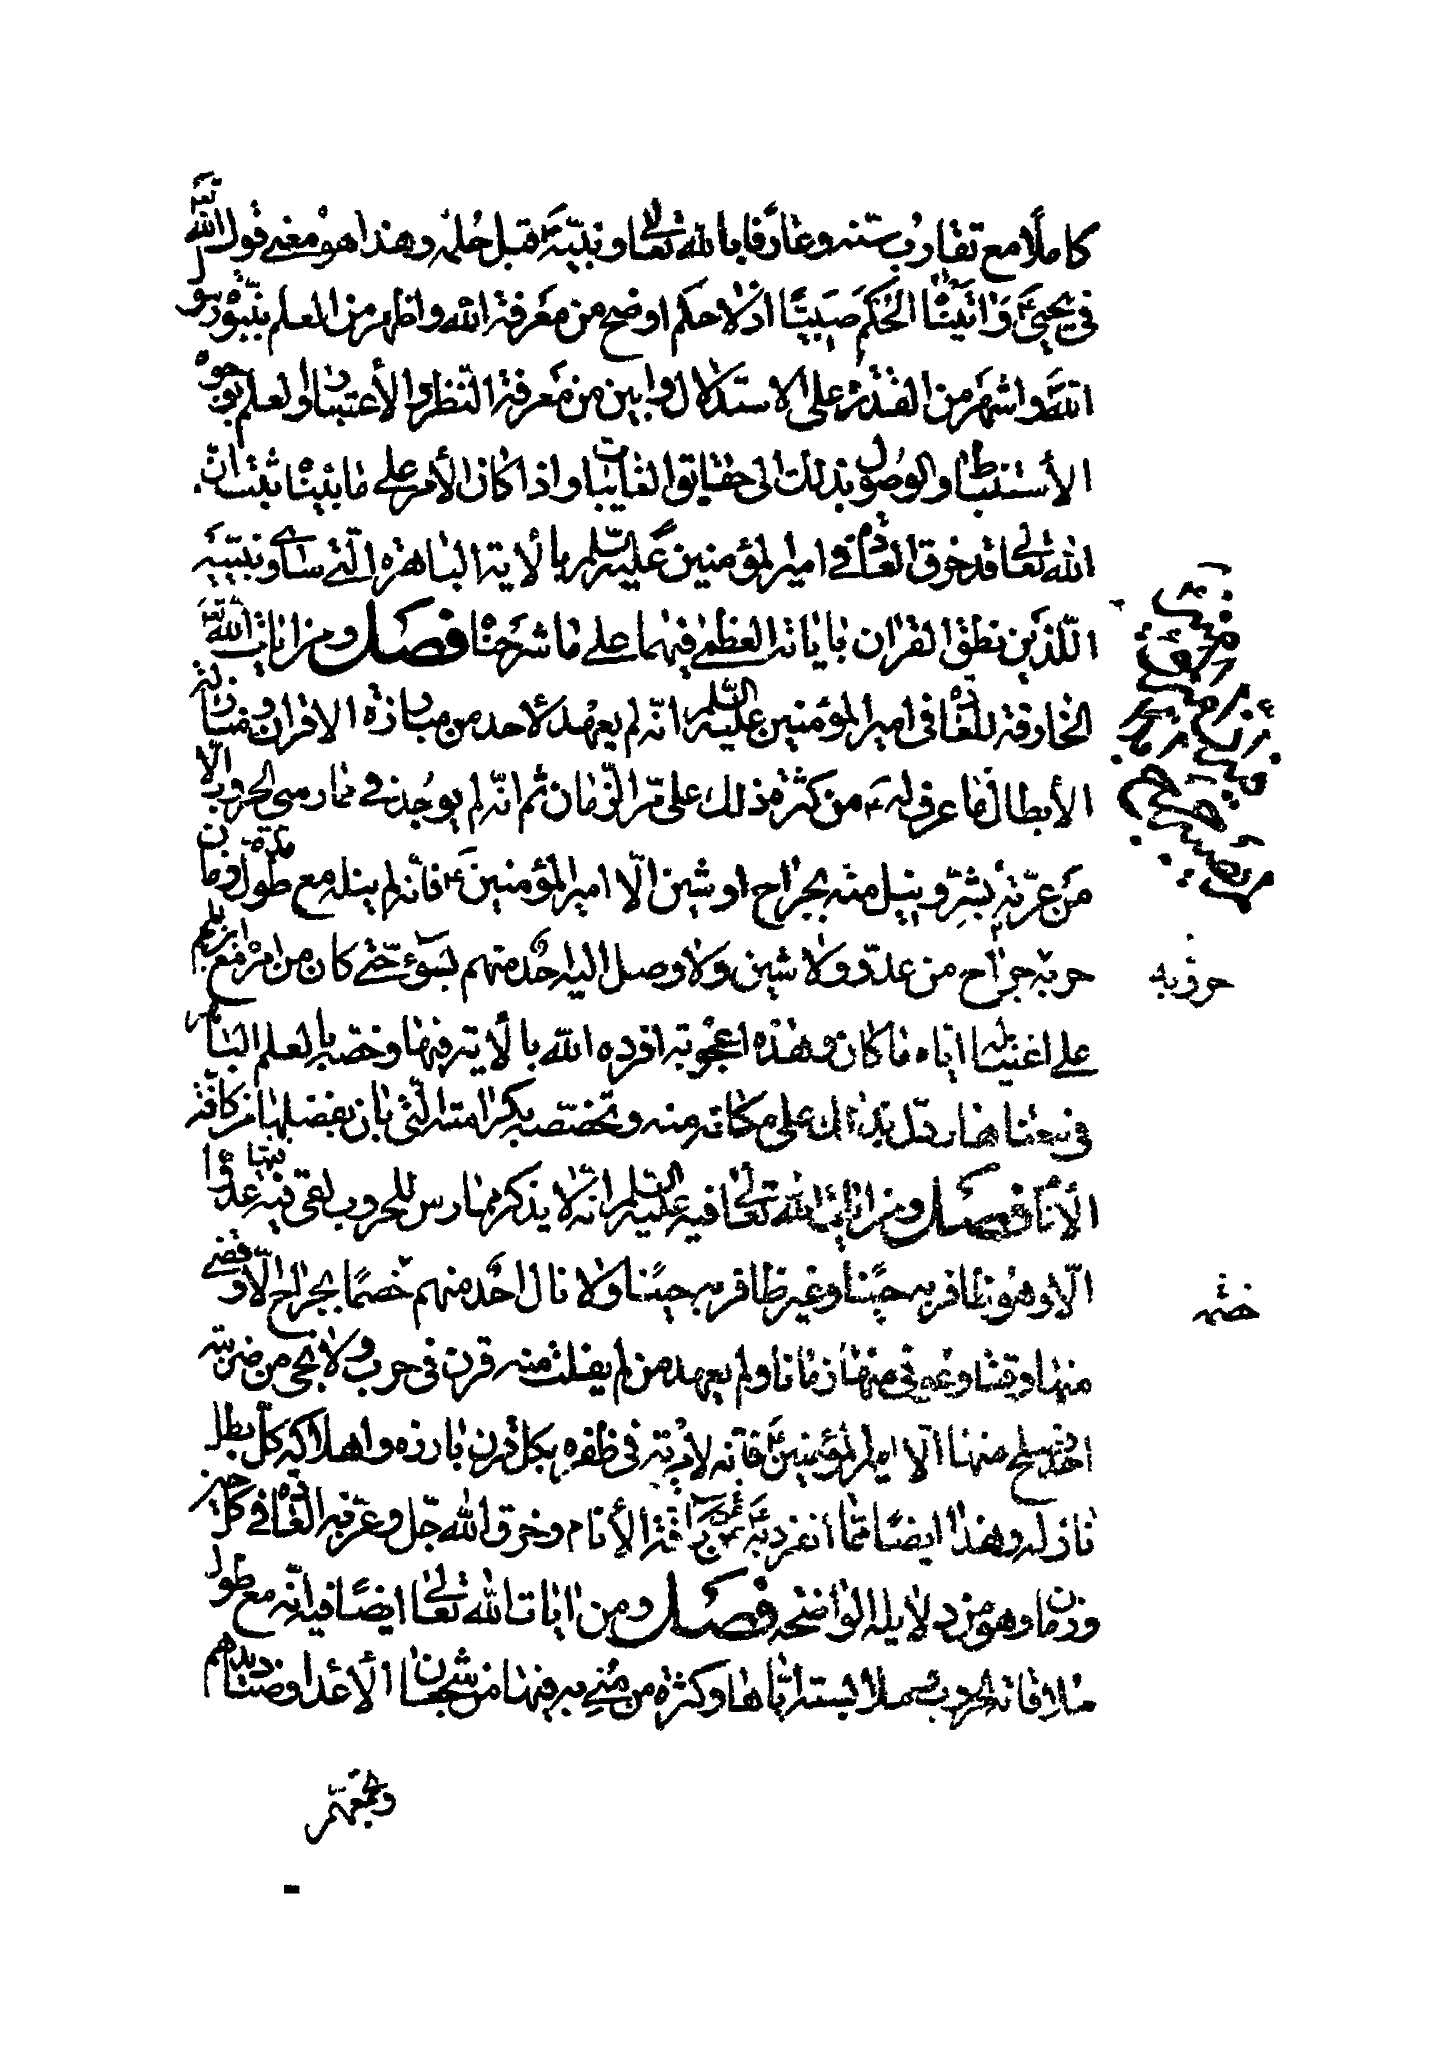 كاملًا مع تقارب سنه وعارفا بالله تعالى ونبيّه ص قبل حلمه وهذا هو معنى قول الله تعالى
في يحيى ع وَاتَيْنٰا الحُكمَ صَبِيًّا اذ لا حكم اوضح من معرفة الله واظهر من العلم بنبوّة رسول
الله واشهر من القدرة على الاستدلال وابين من معرفة النظر والأعتبار والعلم بوجوه
الأستنباط والوصول بذلك الى حقايق الغايبات واذا كان الأمر على ما بيّنا ثبت ان
الله تعالى قد خرق العادة في امير المؤمنين عليه السلم بالأية الباهرة الّتي ساوى نبيّيه
اللّذين نطق القران باياته العظمى فيهما على ما شرحنا فصل ومن ايات الله تعالى
الخارقة للعادة في امير المؤمنين عليه السلم انّه لم يعهد لأحد من مبارزة الاقران ومنازلة
الأبطال ما عرف له ع من كثرة ذلك على مرّ الزّمان ثم انّه لم يوجد في ممارسى الحروب الا
من عرّته بشرّ ونيل منه بجراح او شين الّا امير المؤمنين ع فانّه لم ينله مع طول مدّة زمان
حربه جراح من عدوّ ولا شين ولا وصل اليه احدٌ منهم بسوء حتّى كان من امره مع ابن ملجم
على اغتياله اياه ما كان وهذه اعجوبة افرده الله بالأية فيها وخصه بالعلم الباهر
في معناها ودلّ بذلك على مكانه منه وتخصّصه بكرامته التى بان بفضلها من كافّة
الأنام فصل ومن ايات الله تعالى فيه عليه السلم انّه لا يذكر ممارس للحروب لقى فيها عدوا
الّا وهو ظافر به حينا وغير ظافر به حينا ولا نال احدٌ منهم خصمًا بجراح الّا وقضى
منها وقتا وعوفى منها زمانا ولم يعهد من لم يفلت منه قرن في حرب ولا نجى من ضربته
احد فصلح منها الّا امير المؤمنين ع فانّه لا مرية في ظفره بكل قرن بارزه واهلاكه كلّ بطل
نازله وهذا ايضًا ممّا انفرد به ع من كافة الأنام وخرق الله جلّ وعزّ به العادة في كلّ حين
وزمان وهو من دلايله الواضحه فصل ومن ايات الله تعالى ايضًا فيه انّه مع طول
ملاقاته الحروب وملابسته ايّاها وكثرة من مُنى به فيها من شجعان الأعداء وصناديدهم
حروبه
خصمه
وتجمعهم